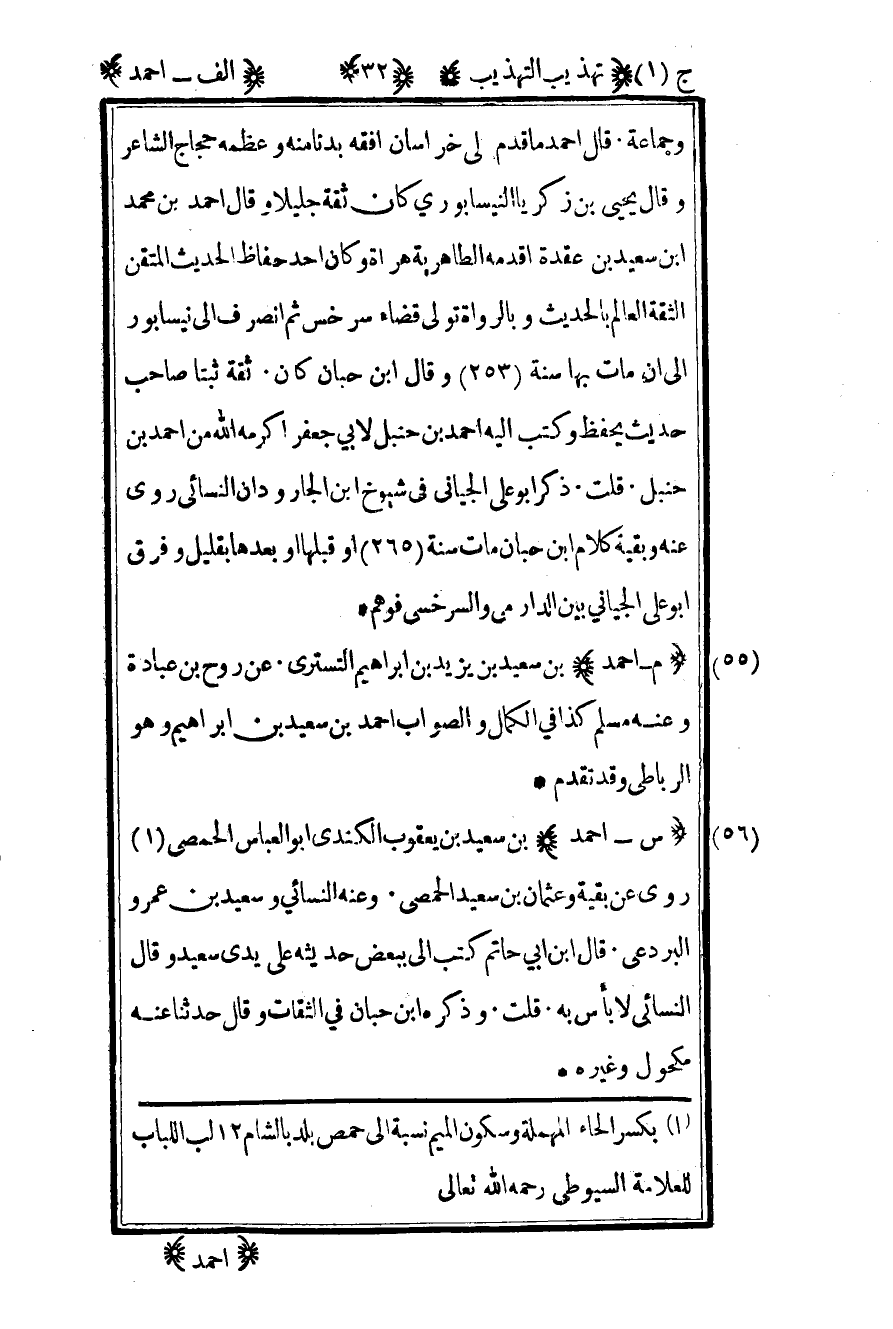 ج (١) ﴿ تهذيب التهذيب ﴾ ﴿٣٢﴾ ﴿ الف ـ احمد ﴾
وجماعة · قال احمد ماقدم لى خراسان افقه بدنامنه وعظمه حجاج الشاعر
وقال يحيى بن زكريا النيسابوري كان ثقة جليلا وقال احمد بن محمد
ابن سعيد بن عقدة اقدمه الطاهرية هراة وكان احد حفاظ الحديث المتقن
الثقة العالم بالحديث وبالرواة تولى قضاء سرخس ثم انصرف الى نيسابور
الى ان مات بها سنة (٢٥٣) وقال ابن حبان كان · ثقة ثبتا صاحب
حديث يحفظ وكتب اليه احمد بن حنبل لابي جعفر اكرمه الله من احمد بن
حنبل · قلت · ذكر ابو على الجيانى فى شيوخ ابن الجارود ان النسائى روى
عنه وبقية كلام ابن حبان مات سنة (٢٦٥) او قبلها او بعدها بقليل وفرق
ابو على الجياني بين الدارمى والسرخسى فوهم *
(٥٥) ﴿ م ـ احمد ﴾ بن سعيد بن يزيد بن ابراهيم التسترى · عن روح بن عبادة
وعنه مسلم كذا في الكمال والصواب احمد بن سعيد بن ابراهيم وهو
الرباطى وقد تقدم *
(٥٦) ﴿ س ـ احمد ﴾ بن سعيد بن يعقوب الكندى ابو العباس الحمصى (١)
روى عن بقية وعثمان بن سعيد الحمصى · وعنه النسائي وسعيد بن عمرو
البردعى · قال ابن ابي حاتم كتب الى ببعض حديثه على يدى سعيد وقال
النسائى لا بأس به · قلت · وذكره ابن حبان في الثقات وقال حدثنا عنه
مكحول وغيره *
(١) بكسر الحاء المهملة وسكون الميم نسبة الى حمص بلد بالشام ١٢ لب اللباب
للعلامة السيوطى رحمه الله تعالى
﴿ احمد ﴾